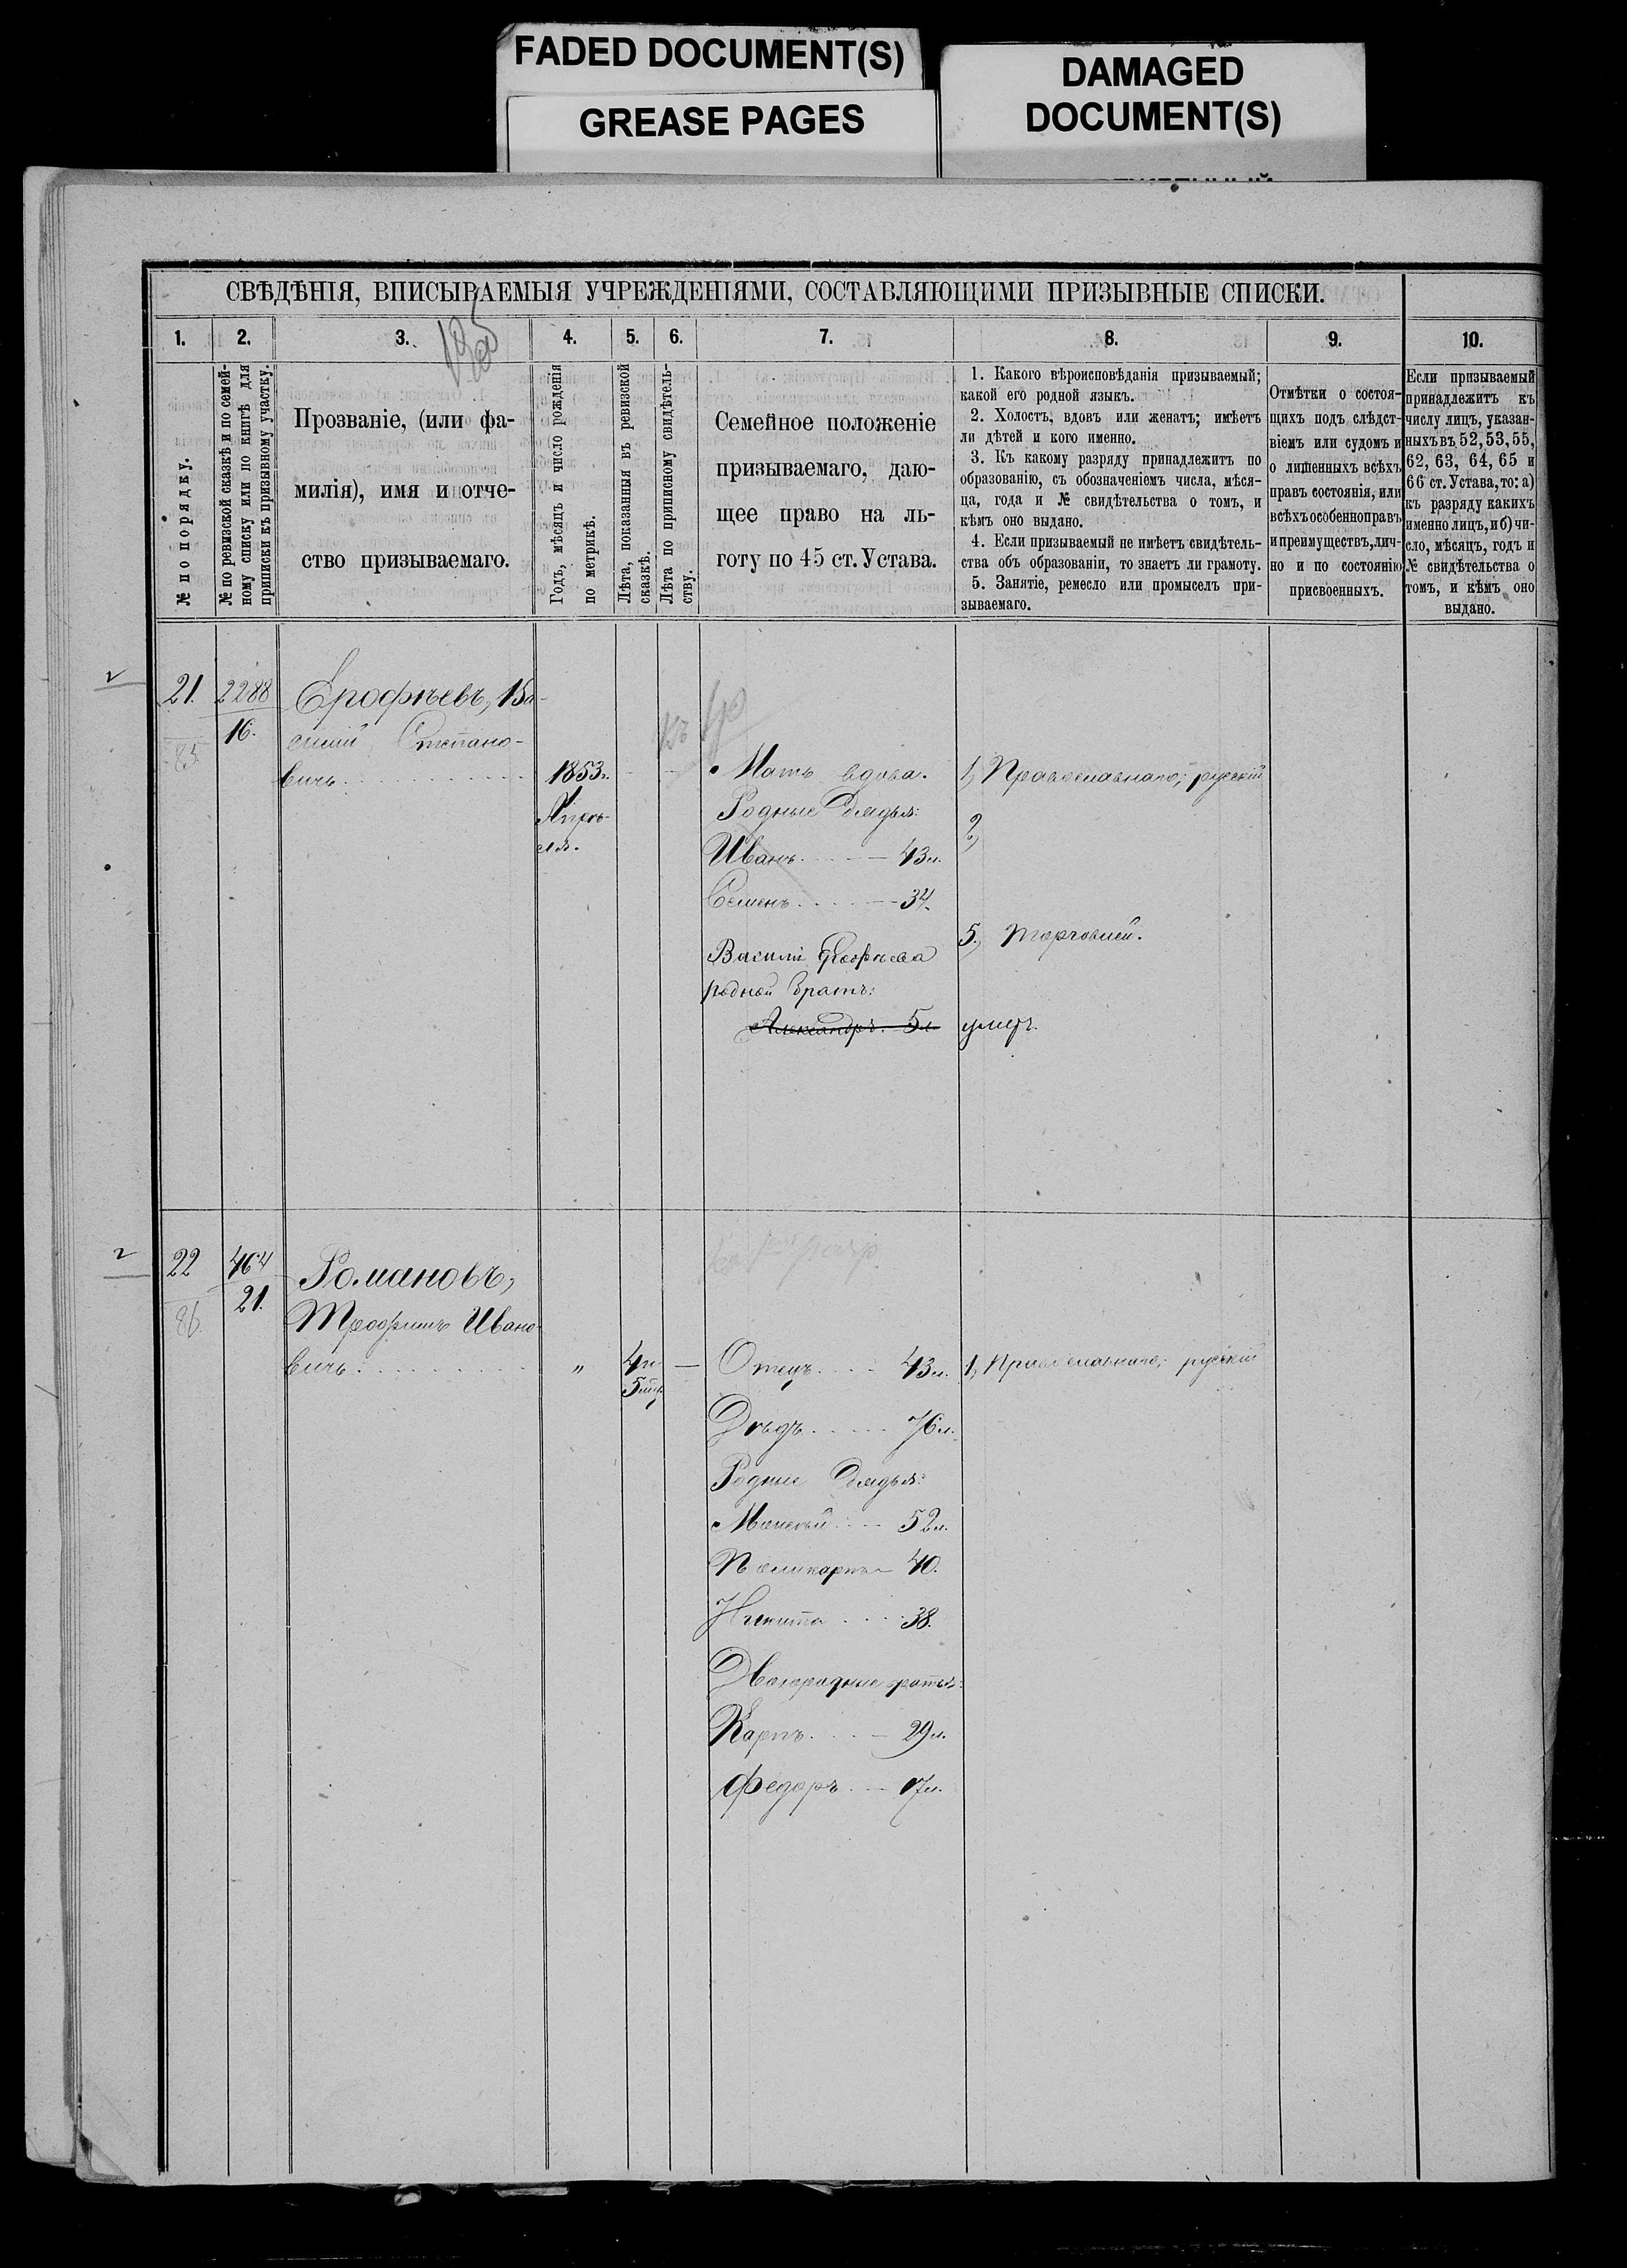 FADED DOCUMENT(S)
GREASE PAGES
DAMAGED
DOCUMENT(S)
СВѢДѢНІЯ, ВПИСЫВАЕМЫЯ УЧРЕЖДЕНІЯМИ, СОСТАВЛЯЮЩИМИ ПРИЗЫВНЫЕ СПИСКИ.
1.
2.
3.
4.
5.
6.
7.
8.
9.
10.
№ по порядку.
№ по ревизской сказкѣ и по семей-
ному списку или по книгѣ для
приписки къ призывному участку.
Прозваніе, (или фа-
милія), имя и отче-
ство призываемаго.
Годъ, мѣсяцъ и число рожденія
по метрикѣ.
Лѣта, показанныя въ ревизской
сказкѣ.
Лѣта по приписному свидѣтель-
ству.
Семейное положеніе
призываемаго, даю-
щее право на ль-
готу по 45 ст. Устава.
1. Какого вѣроисповѣданія призываемый;
какой его родной языкъ.
2. Холостъ, вдовъ или женатъ; имѣетъ
ли дѣтей и кого именно.
3. Къ какому разряду принадлежитъ по
образованію, съ обозначеніемъ числа, мѣся-
ца, года и № свидѣтельства о томъ, и
кѣмъ оно выдано.
4. Если призываемый не имѣетъ свидѣтель-
ства объ образованіи, то знаетъ ли грамоту.
5. Занятіе, ремесло или промыселъ при-
зываемаго.
Отмѣтки о состоя-
щихъ подъ слѣдст-
віемъ или судомъ и
о лишенныхъ всѣхъ
правъ состоянія, или
всѣхъ особенно правъ
и преимуществъ, лич-
но и по состоянію
присвоенныхъ.
Если призываемый
принадлежитъ къ
числу лицъ, указан-
ныхъ въ 52, 53, 55,
62, 63, 64, 65 и
66 ст. Устава, то: а)
къ разряду какихъ
именно лицъ, и б) чи-
сло, мѣсяцъ, годъ и
№ свидѣтельства о
томъ, и кѣмъ оно
выдано.
21. 2288 Ерофѣевъ, Ва-
16. силій Степано-
85. вичъ 1853г. Мать вдова. 1, Православнаго; русскій
Апрѣ- Родные дядья: 2,
ля. Иванъ 43л.
Семенъ 34.
5, Торговлей.
Василія Ерофѣева
родной братъ:
Александръ. 5л. умеръ.
22 464 Романовъ,
21. Трофимъ Ивано-
86. вичъ " 4г. Отецъ 43л. 1, Православнаго; русскій
5мѣс.
Дѣдъ 76л.
Родные дядья:
52л.
Поликарпъ 40.
Никита 38.
Двоюродные братья:
Карпъ 29л.
Федоръ 17л.